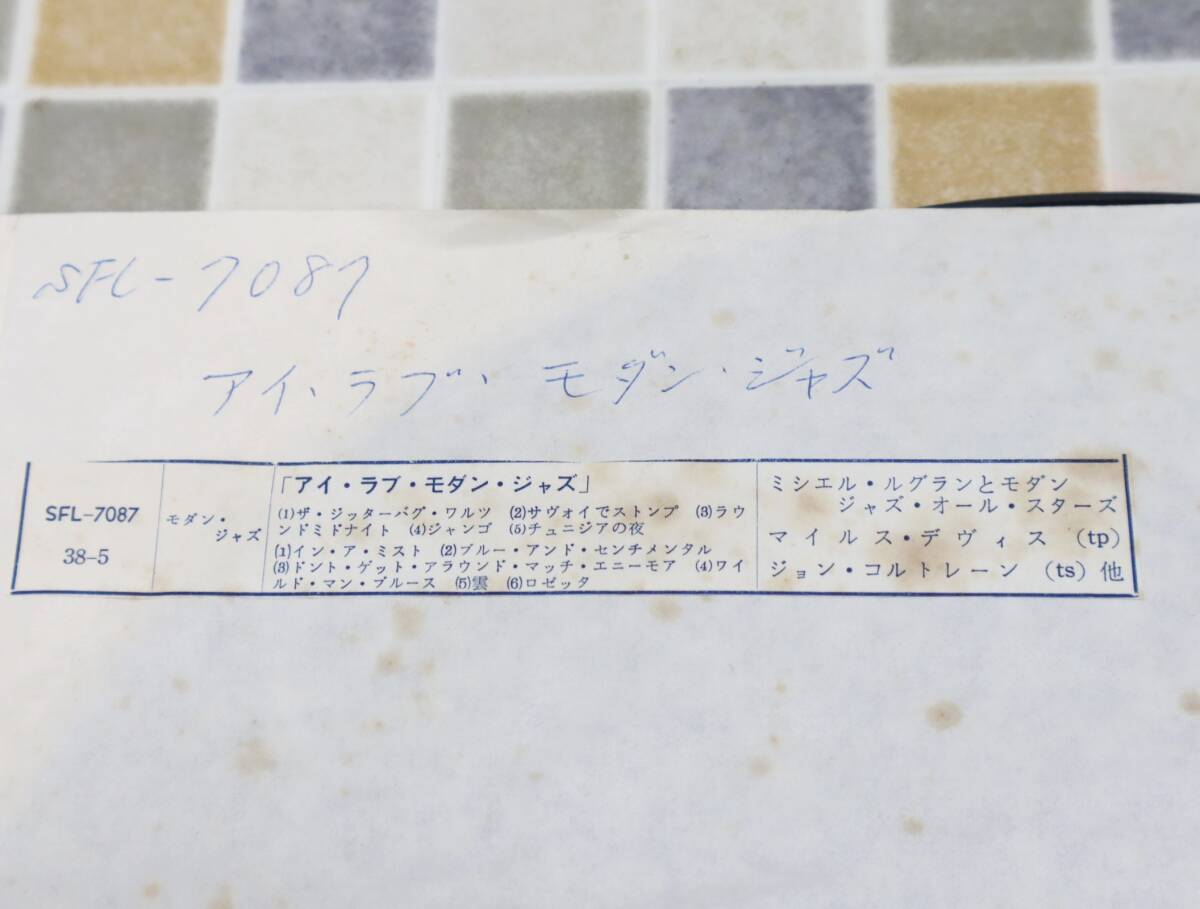 SFL-7087
アイ・ラブ・モダン・ジャズ
SFL-7087
38-5
モダン・
ジャズ
「アイ・ラブ・モダン・ジャズ」
(1)ザ・ジッターバグ・ワルツ (2)サヴォイでストンプ (3)ラウ
ンドミドナイト (4)ジャンゴ (5)チュニジアの夜
(1)イン・ア・ミスト (2)ブルー・アンド・センチメンタル
(3)ドント・ゲット・アラウンド・マッチ・エニーモア (4)ワイ
ルド・マン・ブルース (5)雲 (6)ロゼッタ
ミシエル・ルグランとモダン
ジャズ・オール・スターズ
マイルス・デヴィス (tp)
ジョン・コルトレーン (ts) 他